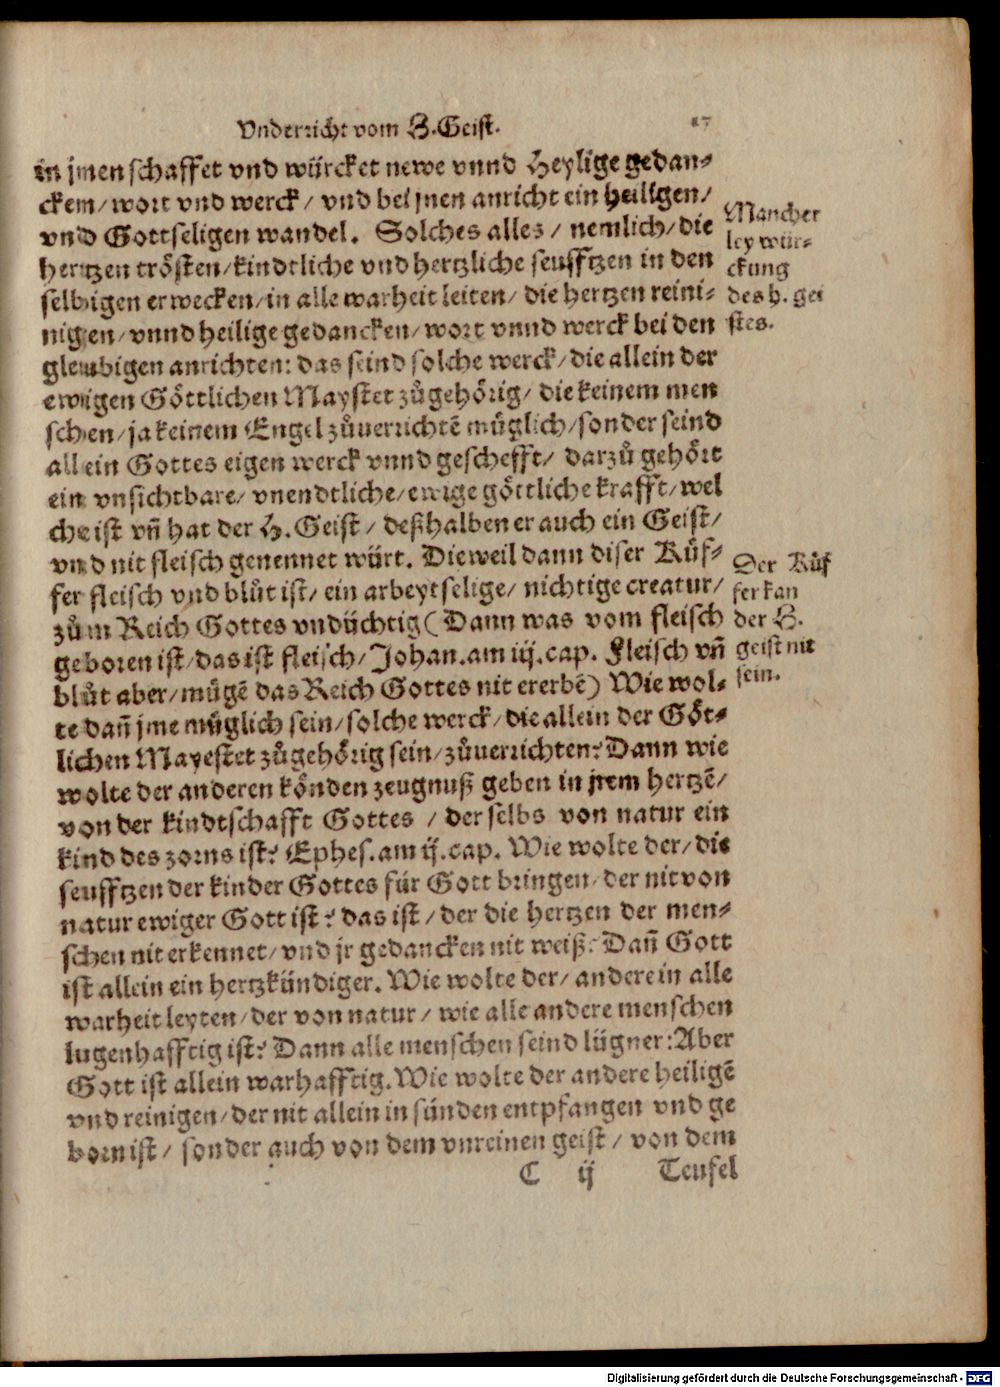 Vnderricht vom H. Geist. 17
in jnen schaffet vnd würcket newe vnnd Heylige gedan-
cken/ wort vnd werck/ vnd bei jnen anricht ein heiligen/
vnd Gottseligen wandel. Solches alles/ nemlich/ die
hertzen trösten/ kindtliche vnd hertzliche seufftzen in den
selbigen erwecken/ in alle warheit leiten/ die hertzen reini-
nigen/ vnnd heilige gedancken/ wort vnnd werck bei den
gleubigen anrichten: das seind solche werck/ die allein der
ewigen Göttlichen Maystet zůgehörig/ die keinem men
schen/ ja keinem Engel zůuerrichtē müglich/ sonder seind
allein Gottes eigen werck vnnd geschefft/ darzů gehört
ein vnsichtbare/ vnendtliche/ ewige göttliche krafft/ wel
che ist vñ hat der H. Geist/ deßhalben er auch ein Geist/
vnd nit fleisch genennet würt. Dieweil dann diser Küf-
fer fleisch vnd blůt ist/ ein arbeytselige/ nichtige creatur/
zům Reich Gottes vndüchtig (Dann was vom fleisch
geboren ist/ das ist fleisch/ Johan. am iij. cap. Fleisch vñ
blůt aber/ mügē das Reich Gottes nit ererbē) Wie wol-
te dañ jme müglich sein/ solche werck/ die allein der Göt-
lichen Mayestet zůgehörig sein/ zůuerrichten? Dann wie
wolte der anderen könden zeugnuß geben in jrem hertzē/
von der kindtschafft Gottes / der selbs von natur ein
kind des zorns ist? Ephes. am ij. cap. Wie wolte der/ die
seufftzen der kinder Gottes für Gott bringen/ der nit von
natur ewiger Gott ist? das ist/ der die hertzen der men-
schen nit erkennet/ vnd jr gedancken nit weiß? Dañ Gott
ist allein ein hertzkündiger. Wie wolte der/ andere in alle
warheit leyten/ der von natur/ wie alle andere menschen
lugenhafftig ist? Dann alle menschen seind lügner: Aber
Gott ist allein warhafftig. Wie wolte der andere heiligē
vnd reinigen/ der nit allein in sünden entpfangen vnd ge
born ist/ sonder auch von dem vnreinen geist/ von dem
C ij Teufel
Mancher
ley wür-
ckung
des h. gei
stes.
Der Küf
fer kan
der H.
geist nit
sein.
Digitalisierung gefördert durch die Deutsche Forschungsgemeinschaft - DFG